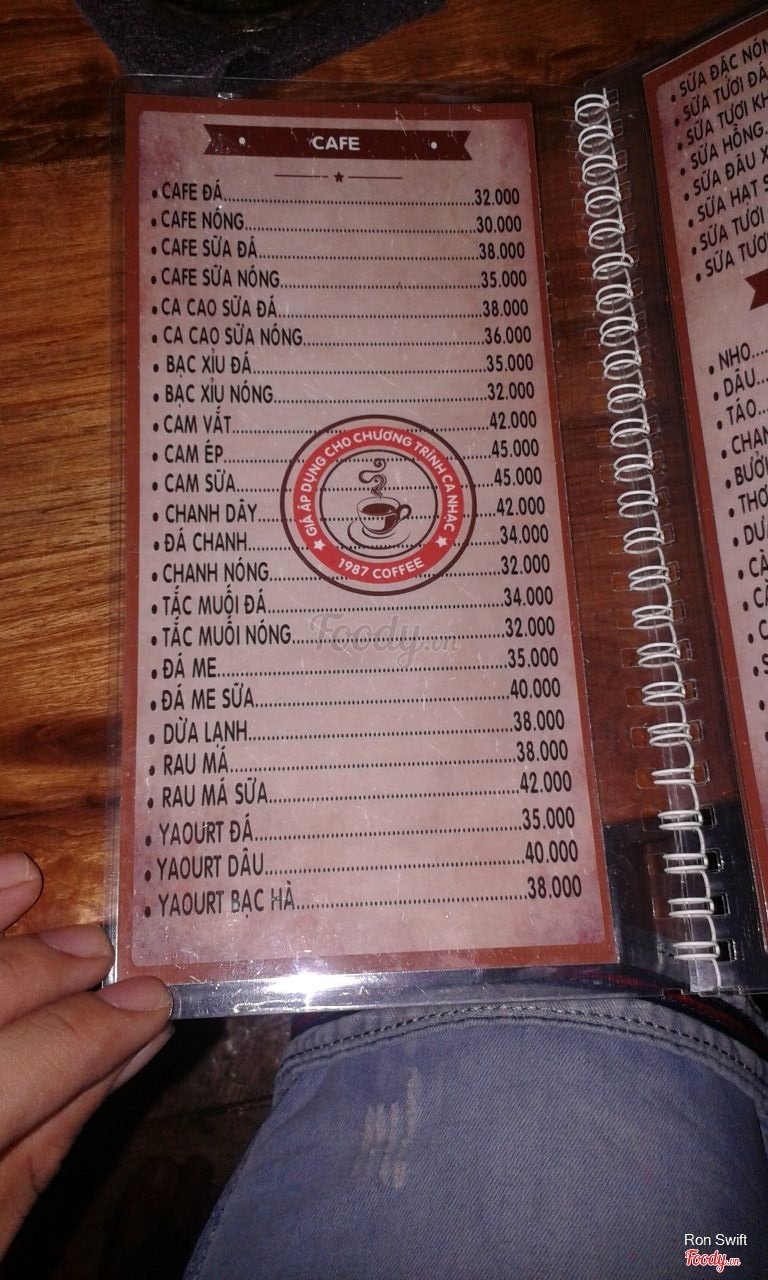 CAFE
• CAFE ĐÁ........32.000
• CAFE NÓNG........30.000
• CAFE SỮA ĐÁ........38.000
• CAFE SỮA NÓNG........35.000
• CA CAO SỮA ĐÁ........38.000
• CA CAO SỮA NÓNG........36.000
• BẠC XỈU ĐÁ........35.000
• BẠC XỈU NÓNG........32.000
• CAM VẮT........42.000
• CAM ÉP........45.000
• CAM SỮA........45.000
• CHANH DÂY........42.000
• ĐÁ CHANH........34.000
• CHANH NÓNG........32.000
• TẮC MUỐI ĐÁ........34.000
• TẮC MUỐI NÓNG........32.000
• ĐÁ ME........35.000
• ĐÁ ME SỮA........40.000
• DỪA LẠNH........38.000
• RAU MÁ........38.000
• RAU MÁ SỮA........42.000
• YAOURT ĐÁ........35.000
• YAOURT DÂU........40.000
• YAOURT BẠC HÀ........38.000
GIÁ ÁP DỤNG CHO CHƯƠNG TRÌNH CA NHẠC
1987 COFFEE
Foody.vn
• SỮA ĐẶC NÓN
• SỮA TƯƠI ĐÁ
• SỮA TƯƠI KH
• SỮA HỒNG.
• SỮA ĐẬU X
• SỮA HẠT S
• SỮA TƯƠI
• SỮA TƯƠ
• NHO....
• DÂU...
• TÁO...
• CHAN
• BƯỞ
• THƠ
• DƯ
• CÀ
• C
Ron Swift
Foody.vn